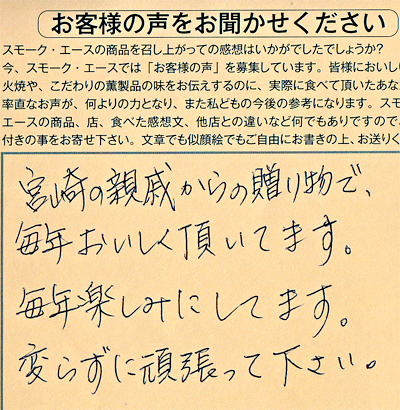 お客様の声をお聞かせください
スモーク・エースの商品を召し上がっての感想はいかがでしたでしょうか?
今、スモーク・エースでは「お客様の声」を募集しています。皆様においし
火焼や、こだわりの薫製品の味をお伝えするのに、実際に食べて頂いたあな
率直なお声が、何よりの力となり、また私どもの今後の参考になります。スモ
エースの商品、店、食べた感想文、他店との違いなど何でもありですので、
付きの事をお寄せ下さい。文章でも似顔絵でもご自由にお書きの上、お送りく
宮崎の親戚からの贈り物で、
毎年おいしく頂いてます。
毎年楽しみにしてます。
変らずに頑張って下さい。